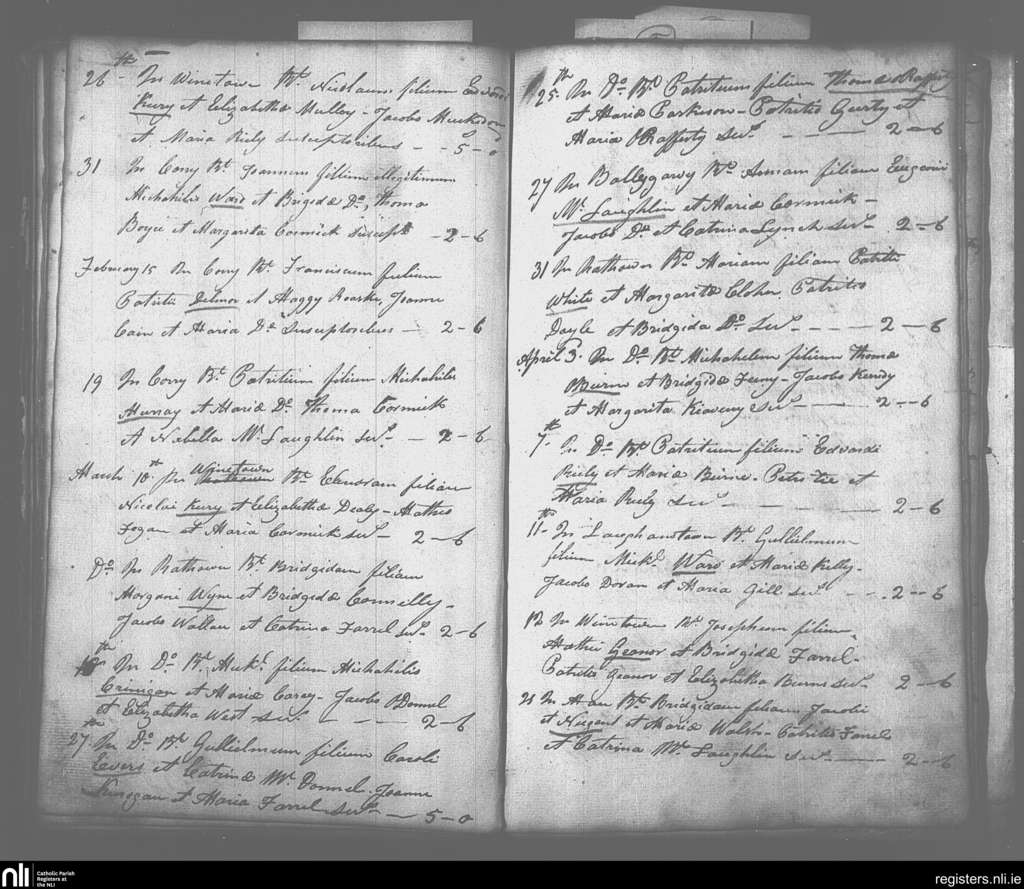 26th In Winetown Bt. Nicolaum filium Edwardi
Kury et Elizabetha Mulley - Jacobo
et Maria Riely susceptoribus - - 5 - 0
31 In Corry Bt. Joannem filium illegitimum
Michahilis Ward et Brigidæ Do., Thoma
Boyce et Margarita Cormick suscept - 2 - 6
February 15 In Corry Bt. Franciscum filium
Patritii Delmor et Haggy Roarke, Joanne
Cain et Maria Do. Susceptoribus - 2 - 6
19 In Corry Bt. Patritium filium Michahilis
Murray et Mariæ Do. Thoma Cormick
et Nabilla Mc. Laughlin sus. - 2 - 6
March 10th In Winetown Bt. Elenoram filiam
Nicolai Kury et Elizabethæ Dealy - Matheo
Fogan et Maria Cormick sus. - 2 - 6
Do. In Rathown Bt. Bridgidam filiam
Morgani Wym et Bridgidæ Connelly -
Jacobo Wallau et Catrina Farrel sus. 2 - 6
In Do. Bt. Michl. filium Michahilis
Crinigan et Mariæ Carey - Jacobo ODonnel
et Elizabetha West sus. - - - 2 - 6
27th In Do. Bt. Gullielmum filium Caroli
Evers et Catrinæ Mc. Donnel. Joanne
Finegan et Maria Farrel sus. - 5 - 0
25th In Do. Bt. Patritium filium Thomæ ORafferty
et Mariæ Parkinson - Patritio Gearty et
Maria ORafferty sus. - - 2 - 6
27 In Ballygarvy Bt. Annam filiam Eugenii
Mc. Laughlin et Mariæ Cormick -
Jacobo Do. et Catrina Lynch sus. 2 - 6
31 In Rathown Bt. Mariam filiam Patritii
White et Margaritæ Cloher. Patritio
Doyle et Bridgida Do. sus. - - - 2 - 6
April 3. In Do. Bt. Michahelem filium Thomæ
OBeirne et Bridgidæ Feeny - Jacobo Kenedy
et Margarita Kiaveny sus. - - 2 - 6
7th. In Do. Bt. Patritium filium Edwardi
Riely et Mariæ Birne - Petro Tie et
Maria Riely sus. - - - 2 - 6
11th - In Bt. Gullielmum
filium Michl. Ward et Mariæ Kelly -
Jacobo Doran et Maria Gill sus. - - 2 - 6
12 In Winetown Bt. Josephum filium
Mathei Geanor et Bridgidæ Farrel -
Patritio Geanor et Elizabetha Burns sus. 2 - 6
21 In Bt. Bridgidam filiam Jacobi
et Nugent et Mariæ Walsh - Patritio Farrel
et Catrina Mc. Laughlin sus. - 2 - 6
nli Catholic Parish
Registers at
the NLI
registers.nli.ie